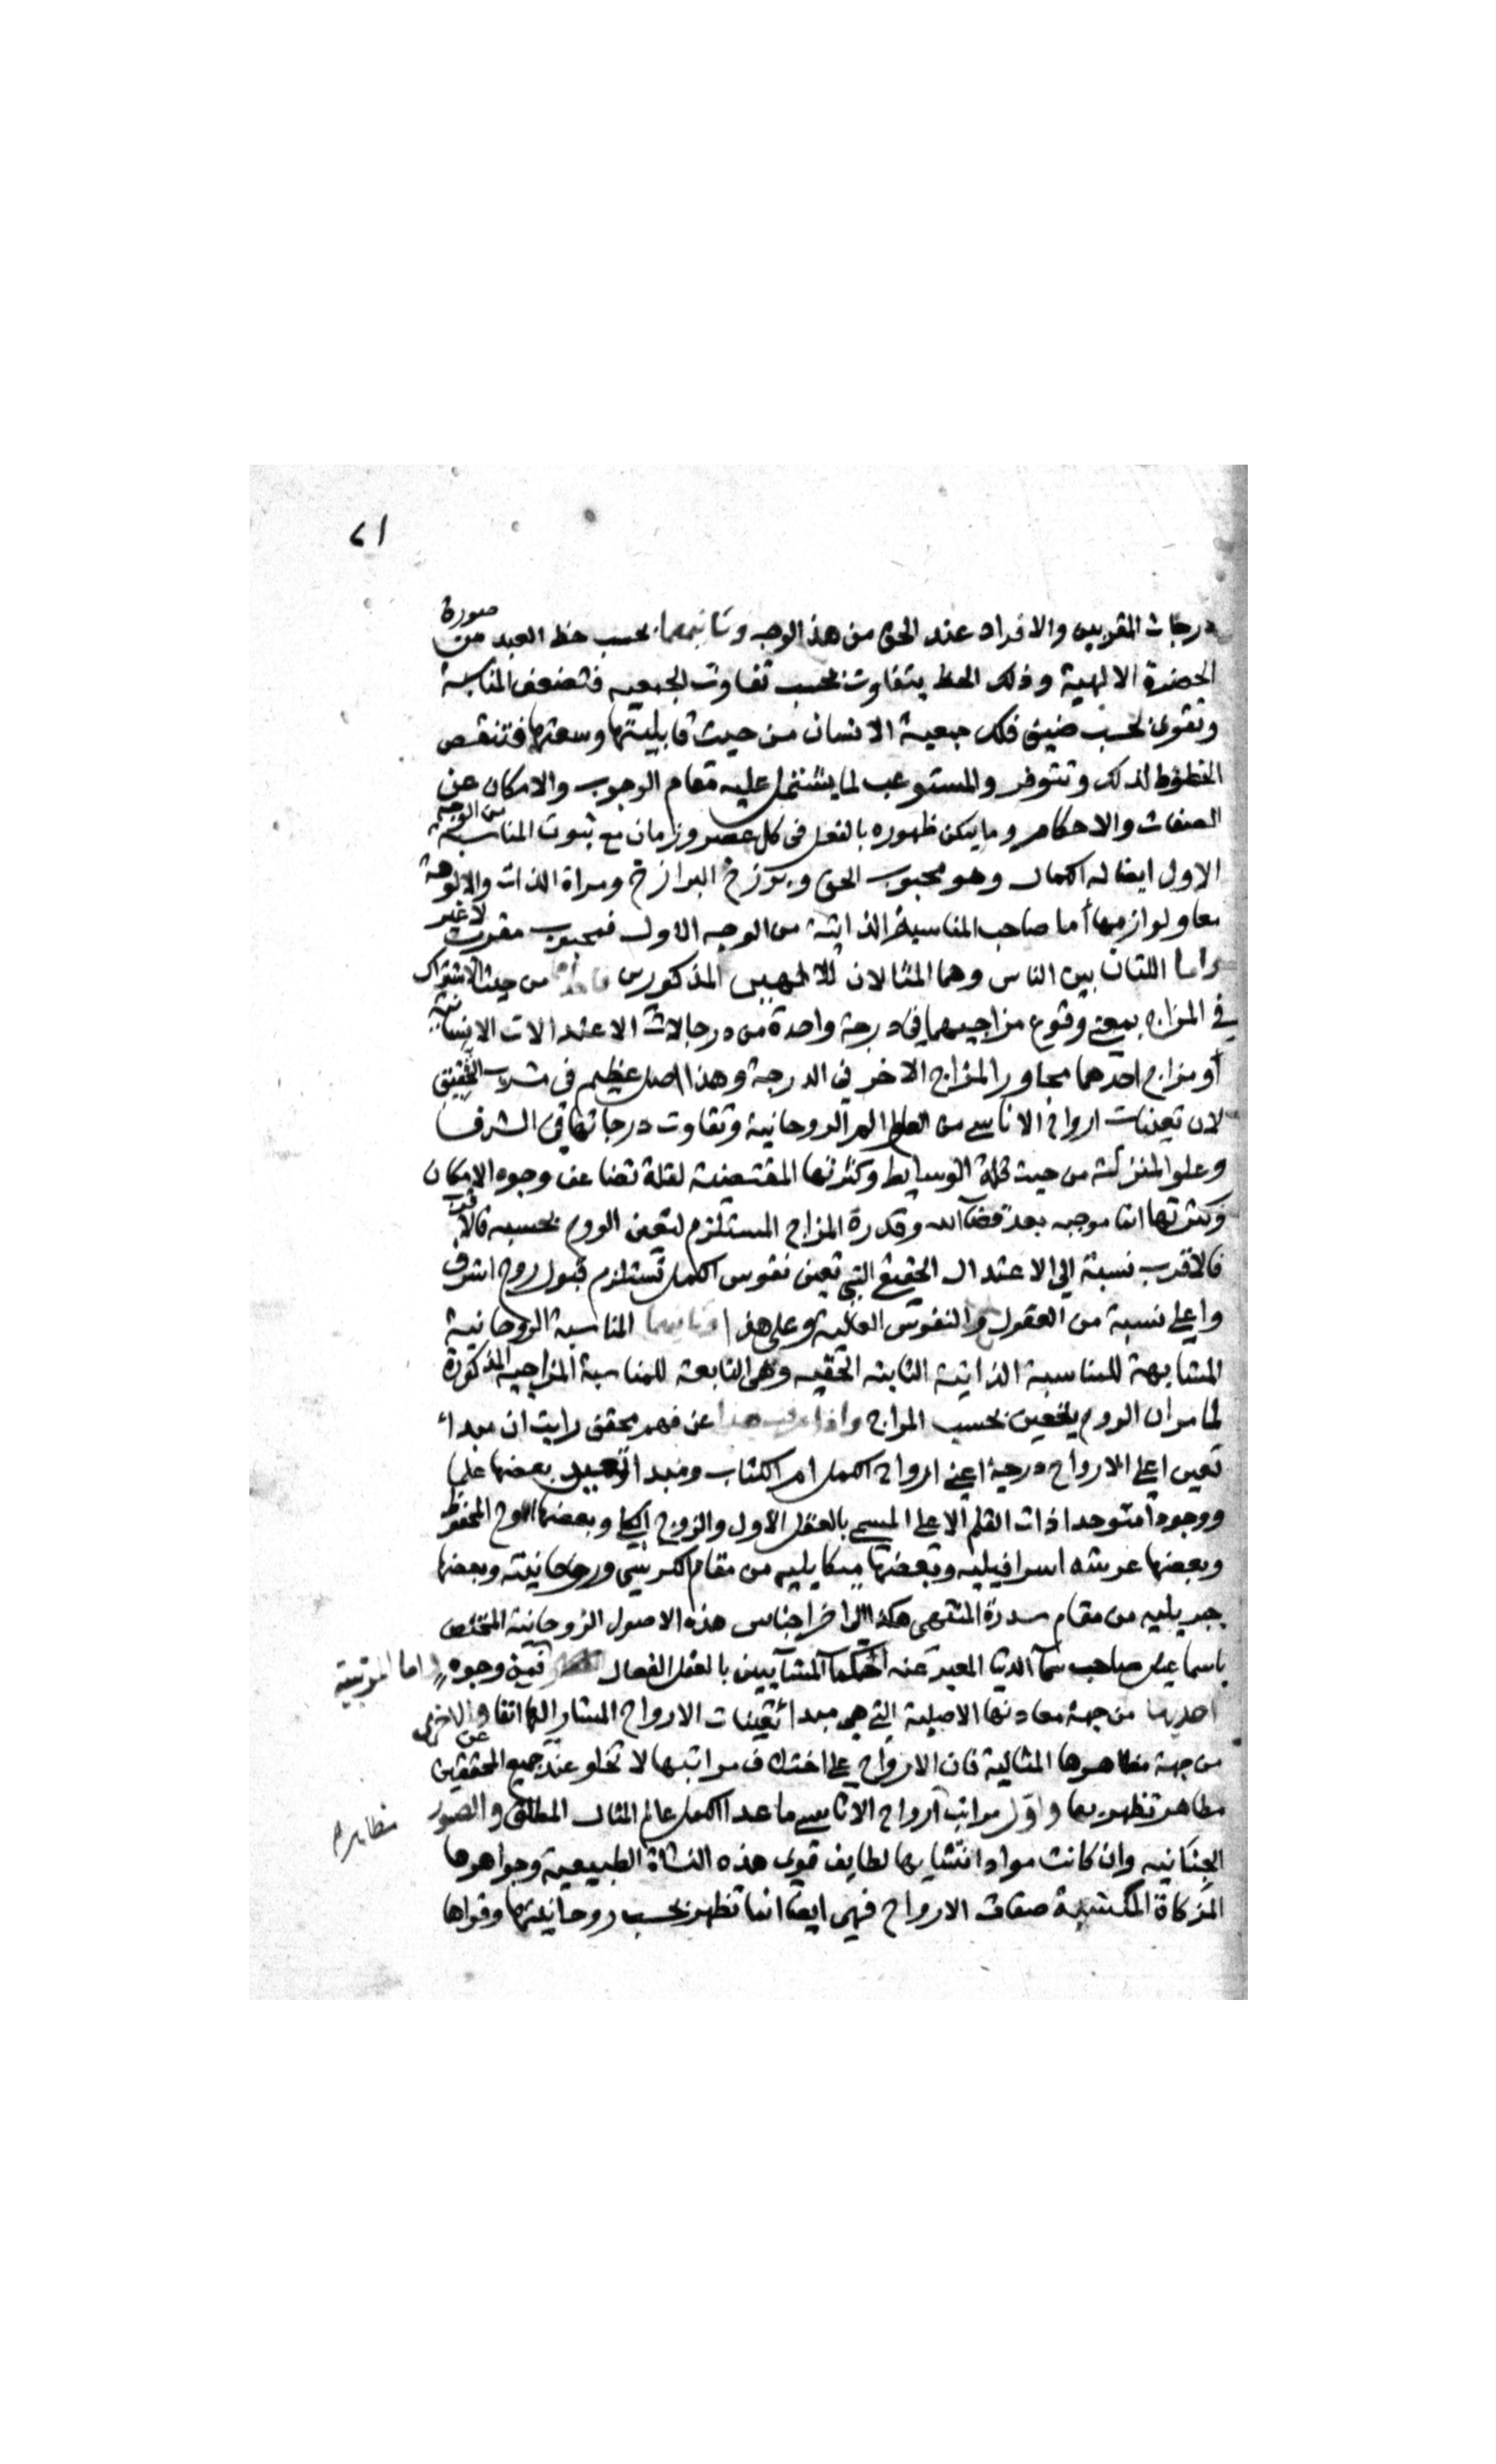 ٢١
درجات المقربين والافراد عند الحق من هذا الوجه وثانيهما بحسب حظ العبد من صورة
الحضرة الالهية وذلك الحظ يتفاوت بحسب تفاوت الجمعيه فتضعف المناسبة
وتقوى بحسب ضيق فلك جمعية الانسان من حيث قابليتها وسعتها فتنقص
الحظوظ لذلك وتتوفر والمستوعب لما يشتمل عليه مقام الوجوب والامكان من
الصفات والاحكام وما يمكن ظهوره بالفعل في كل عصر وزمان مع ثبوت المناسبة من الوجه
الاول ايضا له الكمال وهو محبوب الحق وبرزخ البرازخ ومراة الذات والالوهة
معا ولوازمها أما صاحب المناسبة الذاتية من الوجه الاول فمحبوب مقرب لا غير
واما اللتان بين الناس وهما المثالان للالهيين المذكورين من حيث الاشتراك
في المزاج بمعنى وقوع مزاجيهما في درجة واحدة من درجات الاعتدالات الانسانية
أو مزاج احدهما مجاور المزاج الاخر في الدرجة وهذا اصل عظيم في مشرب التحقيق
لان تعينات ارواح الاناسي من العالم الروحانية وتفاوت درجاتها في الشرف
وعلو المنزلة من حيث قلة الوسايط وكثرتها المقتضية لقلة تضاعف وجوه الامكان
وكثرتها انما موجبه بعد قضآء الله وقدرة المزاج المستلزم لتعين الروح بحسبه فالاقرب
فالاقرب نسبة الى الاعتدال الحقيقي التي تعين نفوس الكمل تستلزم قبول روح اشرف
واعلى نسبة من العقول والنفوس العالية وعلى هذا وثانيهما المناسبة الروحانية
المشابهة للمناسبة الذاتية الثابته الحقيه وهى التابعة للمناسبة المزاجية المذكورة
لما مر ان الروح يتعين بحسب المزاج واذا عرفت هذا عن فهم محقق رايت ان مبدأ
تعين اعلى الارواح درجة اعني ارواح الكمل ام الكتاب ومبدا تعين بعضها علما
ووجودا متوحدا ذات القلم الاعلى المسمى بالعقل الاول والروح الكلي وبعضها اللوح المحفوظ
وبعضها عرشه اسرافيليه وبعضها ميكايليه من مقام الكرسي وروحانيته وبعضها
جبريليه من مقام سدرة المنتهى هكذا الى اخر اجناس هذه الاصول الروحانية المختص
باسماعيل صاحب سمآ الدنيا المعبر عنه الحكما المشآيين بالعقل الفعال فمن وجوه اما المرتبية
احديها من جهة معادنها الاصلية التي هي مبدأ تعينات الارواح المشار اليها انفا والاخرى
من جهة مظاهرها المثالية فان الارواح على اختلاف مراتبها لا تخلو عند جميع المحققين عن
مظاهر تظهر بها واوّل مراتب ارواح الاناسي ما عدا الكمل عالم المثال المطلق والصور
مظاهرهم
الجنانيه وان كانت مواد انتشايها لطايف قوى هذه النشاة الطبيعية وجواهرها
المزكاة المكتسبة صفات الارواح فهى ايضا انما تظهر بحسب روحانيتها وقواها